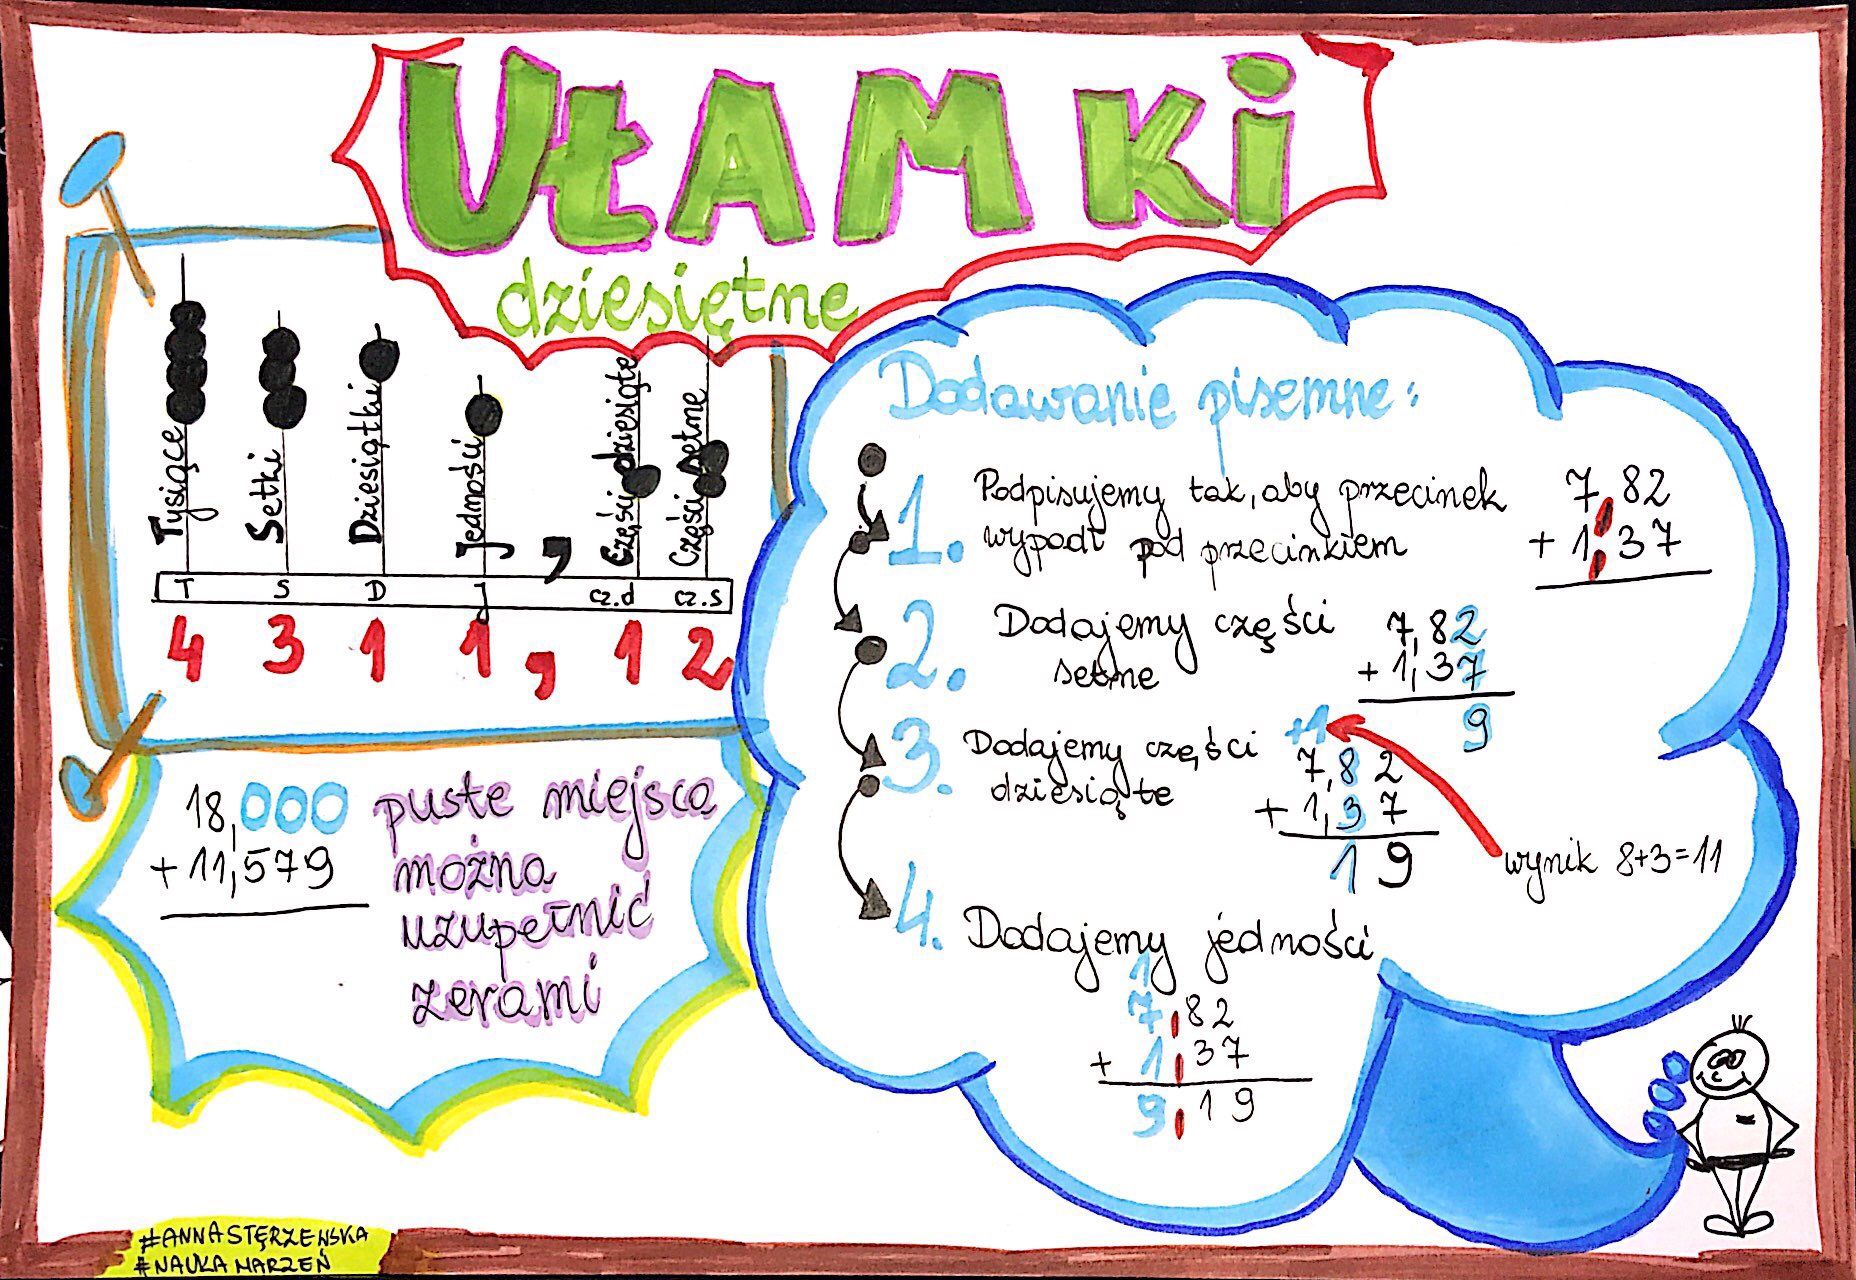 UŁAMKi
dziesiętne
Tysiące
Setki
Dziesiątki
Jedności
,
Części dziesiąte
Części setne
T S D J cz.d cz.s
4 3 1 1 , 1 2
18,000
+ 11,579
puste miejsca
można
uzupełnić
zerami
Dodawanie pisemne:
1. Podpisujemy tak, aby przecinek
wypadł pod przecinkiem
7,82
+ 1,37
2. Dodajemy części
setne
7,82
+ 1,37
9
3. Dodajemy części
dziesiąte
+1
7,82
+ 1,37
19
wynik 8+3=11
4. Dodajemy jedności
1
7,82
+ 1,37
9,19
#ANNASTĘRZEWSKA
#NAUKA MARZEŃ